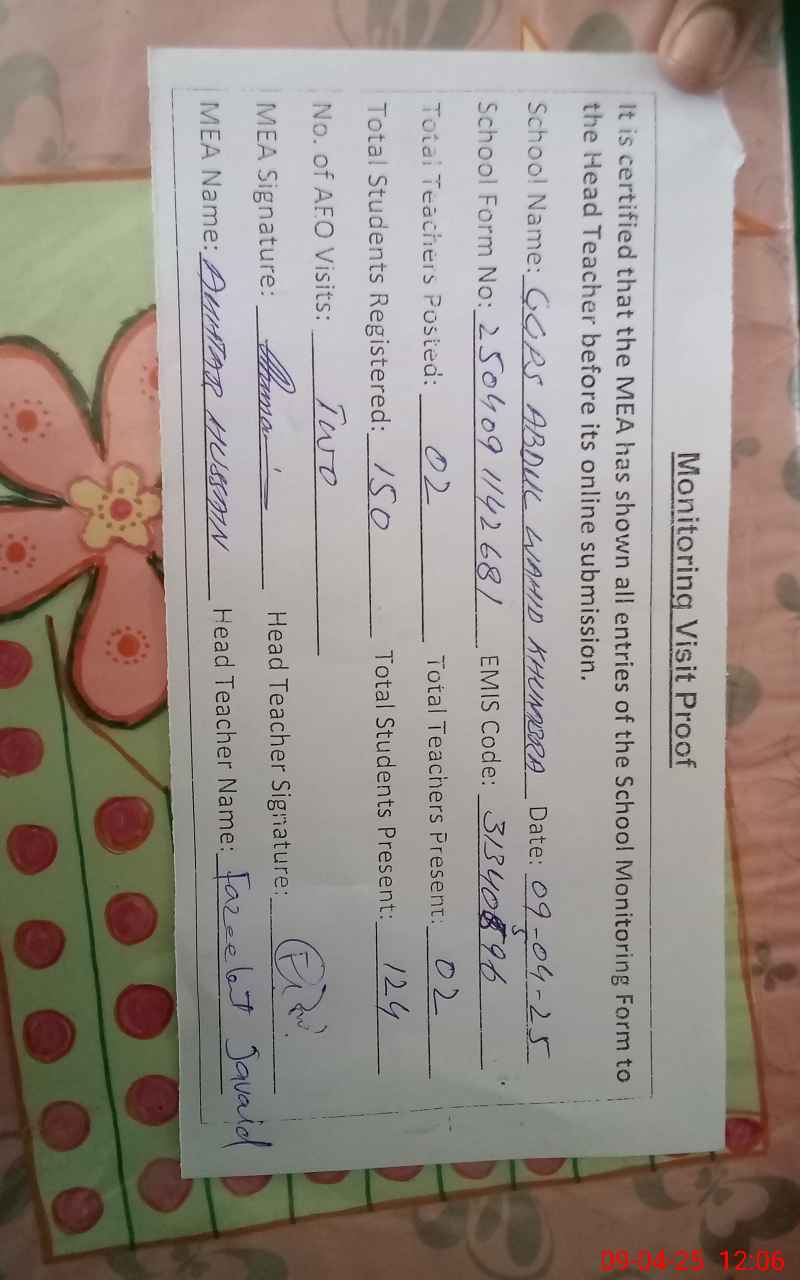 Monitoring Visit Proof
It is certified that the MEA has shown all entries of the School Monitoring Form to
the Head Teacher before its online submission.
School Name: GGPS ABDUL WAHID KHUMBRA Date: 09-04-25
School Form No: 2504091142681 EMIS Code: 31340596
Total Teachers Posted: 02 Total Teachers Present: 02
Total Students Registered: 150 Total Students Present: 124
No. of AEO Visits: Two
MEA Signature: Head Teacher Signature:
MEA Name: HUSSAIN Head Teacher Name: Fazeelat Javaid
09-04-25 12:06